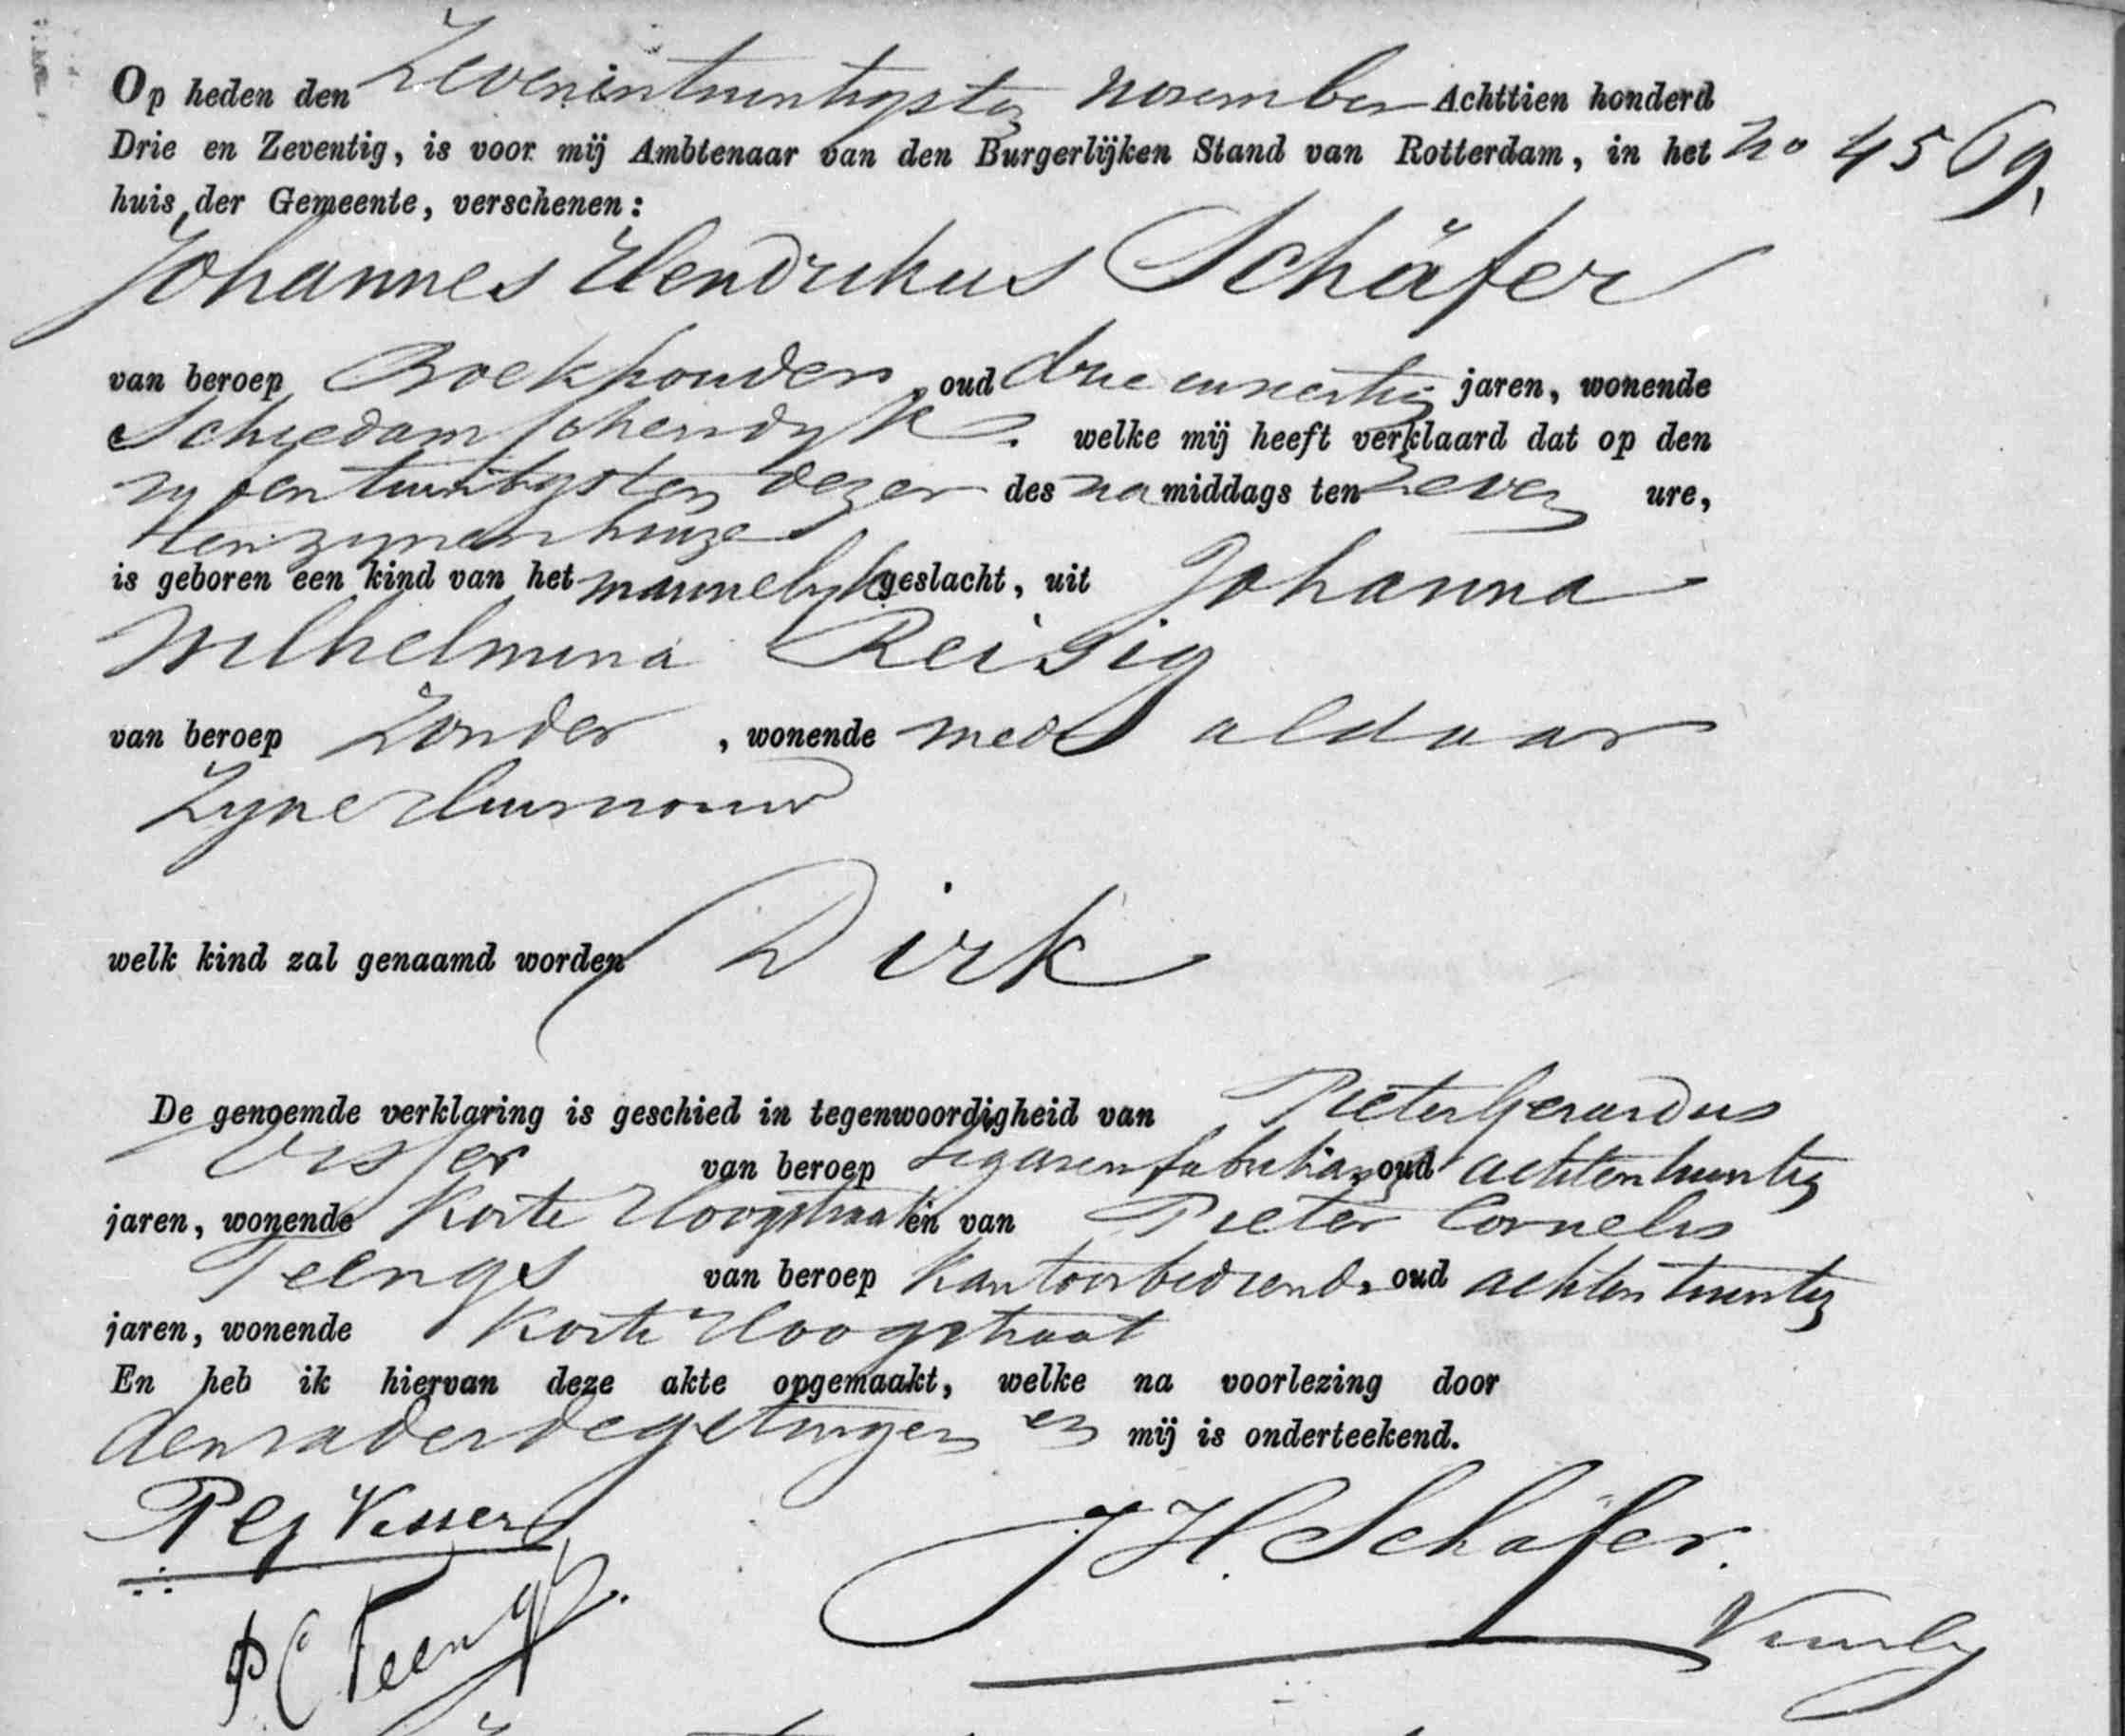 Op heden den Zevenentwintigsten November Achttien honderd
Drie en Zeventig, is voor mij Ambtenaar van den Burgerlijken Stand van Rotterdam, in het No 4569.
huis der Gemeente, verschenen:
Johannes Hendrikus Schäfer
van beroep Boekhouder, oud drie en veertig jaren, wonende
Schiedamschendyk. welke mij heeft verklaard dat op den
vyfentwintigsten dezer des na middags ten zeven ure,
ten zynen huize
is geboren een kind van het mannelyk geslacht, uit Johanna
Wilhelmina Reisig
van beroep Zonder, wonende mede aldaar
Zyne Huisvrouw
welk kind zal genaamd worden Dirk
De genoemde verklaring is geschied in tegenwoordigheid van Pieter Gerardus
Visser van beroep sigarenfabrikant oud achtentwintig
jaren, wonende Korte Hoogstraat en van Pieter Cornelis
Teengs van beroep kantoorbediende oud achtentwintig
jaren, wonende Korte Hoogstraat
En heb ik hiervan deze akte opgemaakt, welke na voorlezing door
den vader de getuigen en mij is onderteekend.
Visser J H. Schäfer.
P C Teengs.